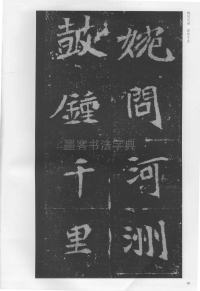 婉問河洲
皷鍾千里
墨客书法字典